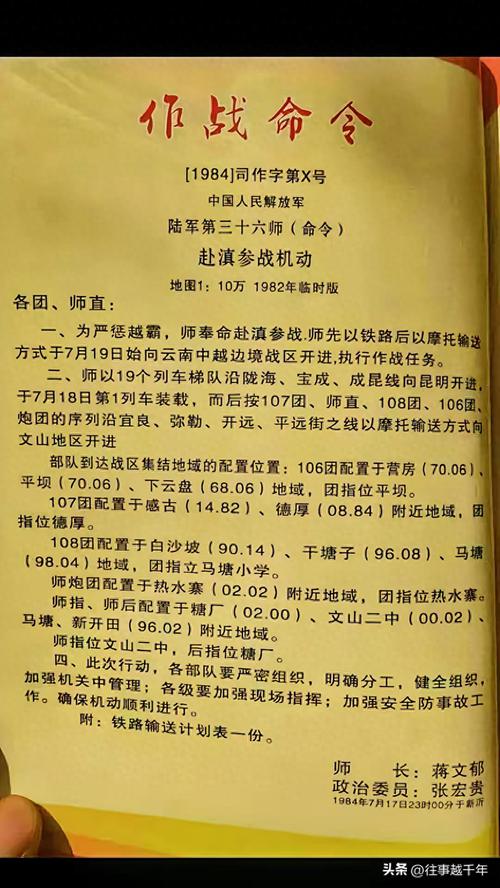 作战命令
[1984]司作字第X号
中国人民解放军
陆军第三十六师（命令）
赴滇参战机动
地图1：10万 1982年临时版
各团、师直：
一、为严惩越霸，师奉命赴滇参战.师先以铁路后以摩托输送
方式于7月19日始向云南中越边境战区开进,执行作战任务。
二、师以19个列车梯队沿陇海、宝成、成昆线向昆明开进，
于7月18日第1列车装载，而后按107团、师直、108团、106团、
炮团的序列沿宜良、弥勒、开远、平远街之线以摩托输送方式向
文山地区开进
部队到达战区集结地域的配置位置：106团配置于营房（70.06）、
平坝（70.06）、下云盘（68.06）地域，团指位平坝。
107团配置于感古（14.82）、德厚（08.84）附近地域，团
指位德厚。
108团配置于白沙坡（90.14）、干塘子（96.08）、马塘
（98.04）地域，团指立马塘小学。
师炮团配置于热水寨（02.02）附近地域，团指位热水寨。
师指、师后配置于糖厂（02.00）、文山二中（00.02）、
马塘、新开田（96.02）附近地域。
师指位文山二中，后指位糖厂。
四、此次行动，各部队要严密组织，明确分工，健全组织，
加强机关中管理；各级要加强现场指挥；加强安全防事故工
作。确保机动顺利进行。
附：铁路输送计划表一份。
师 长：蒋文郁
政治委员：张宏贵
1984年7月17日23时00分于新沂
头条 @往事越千年